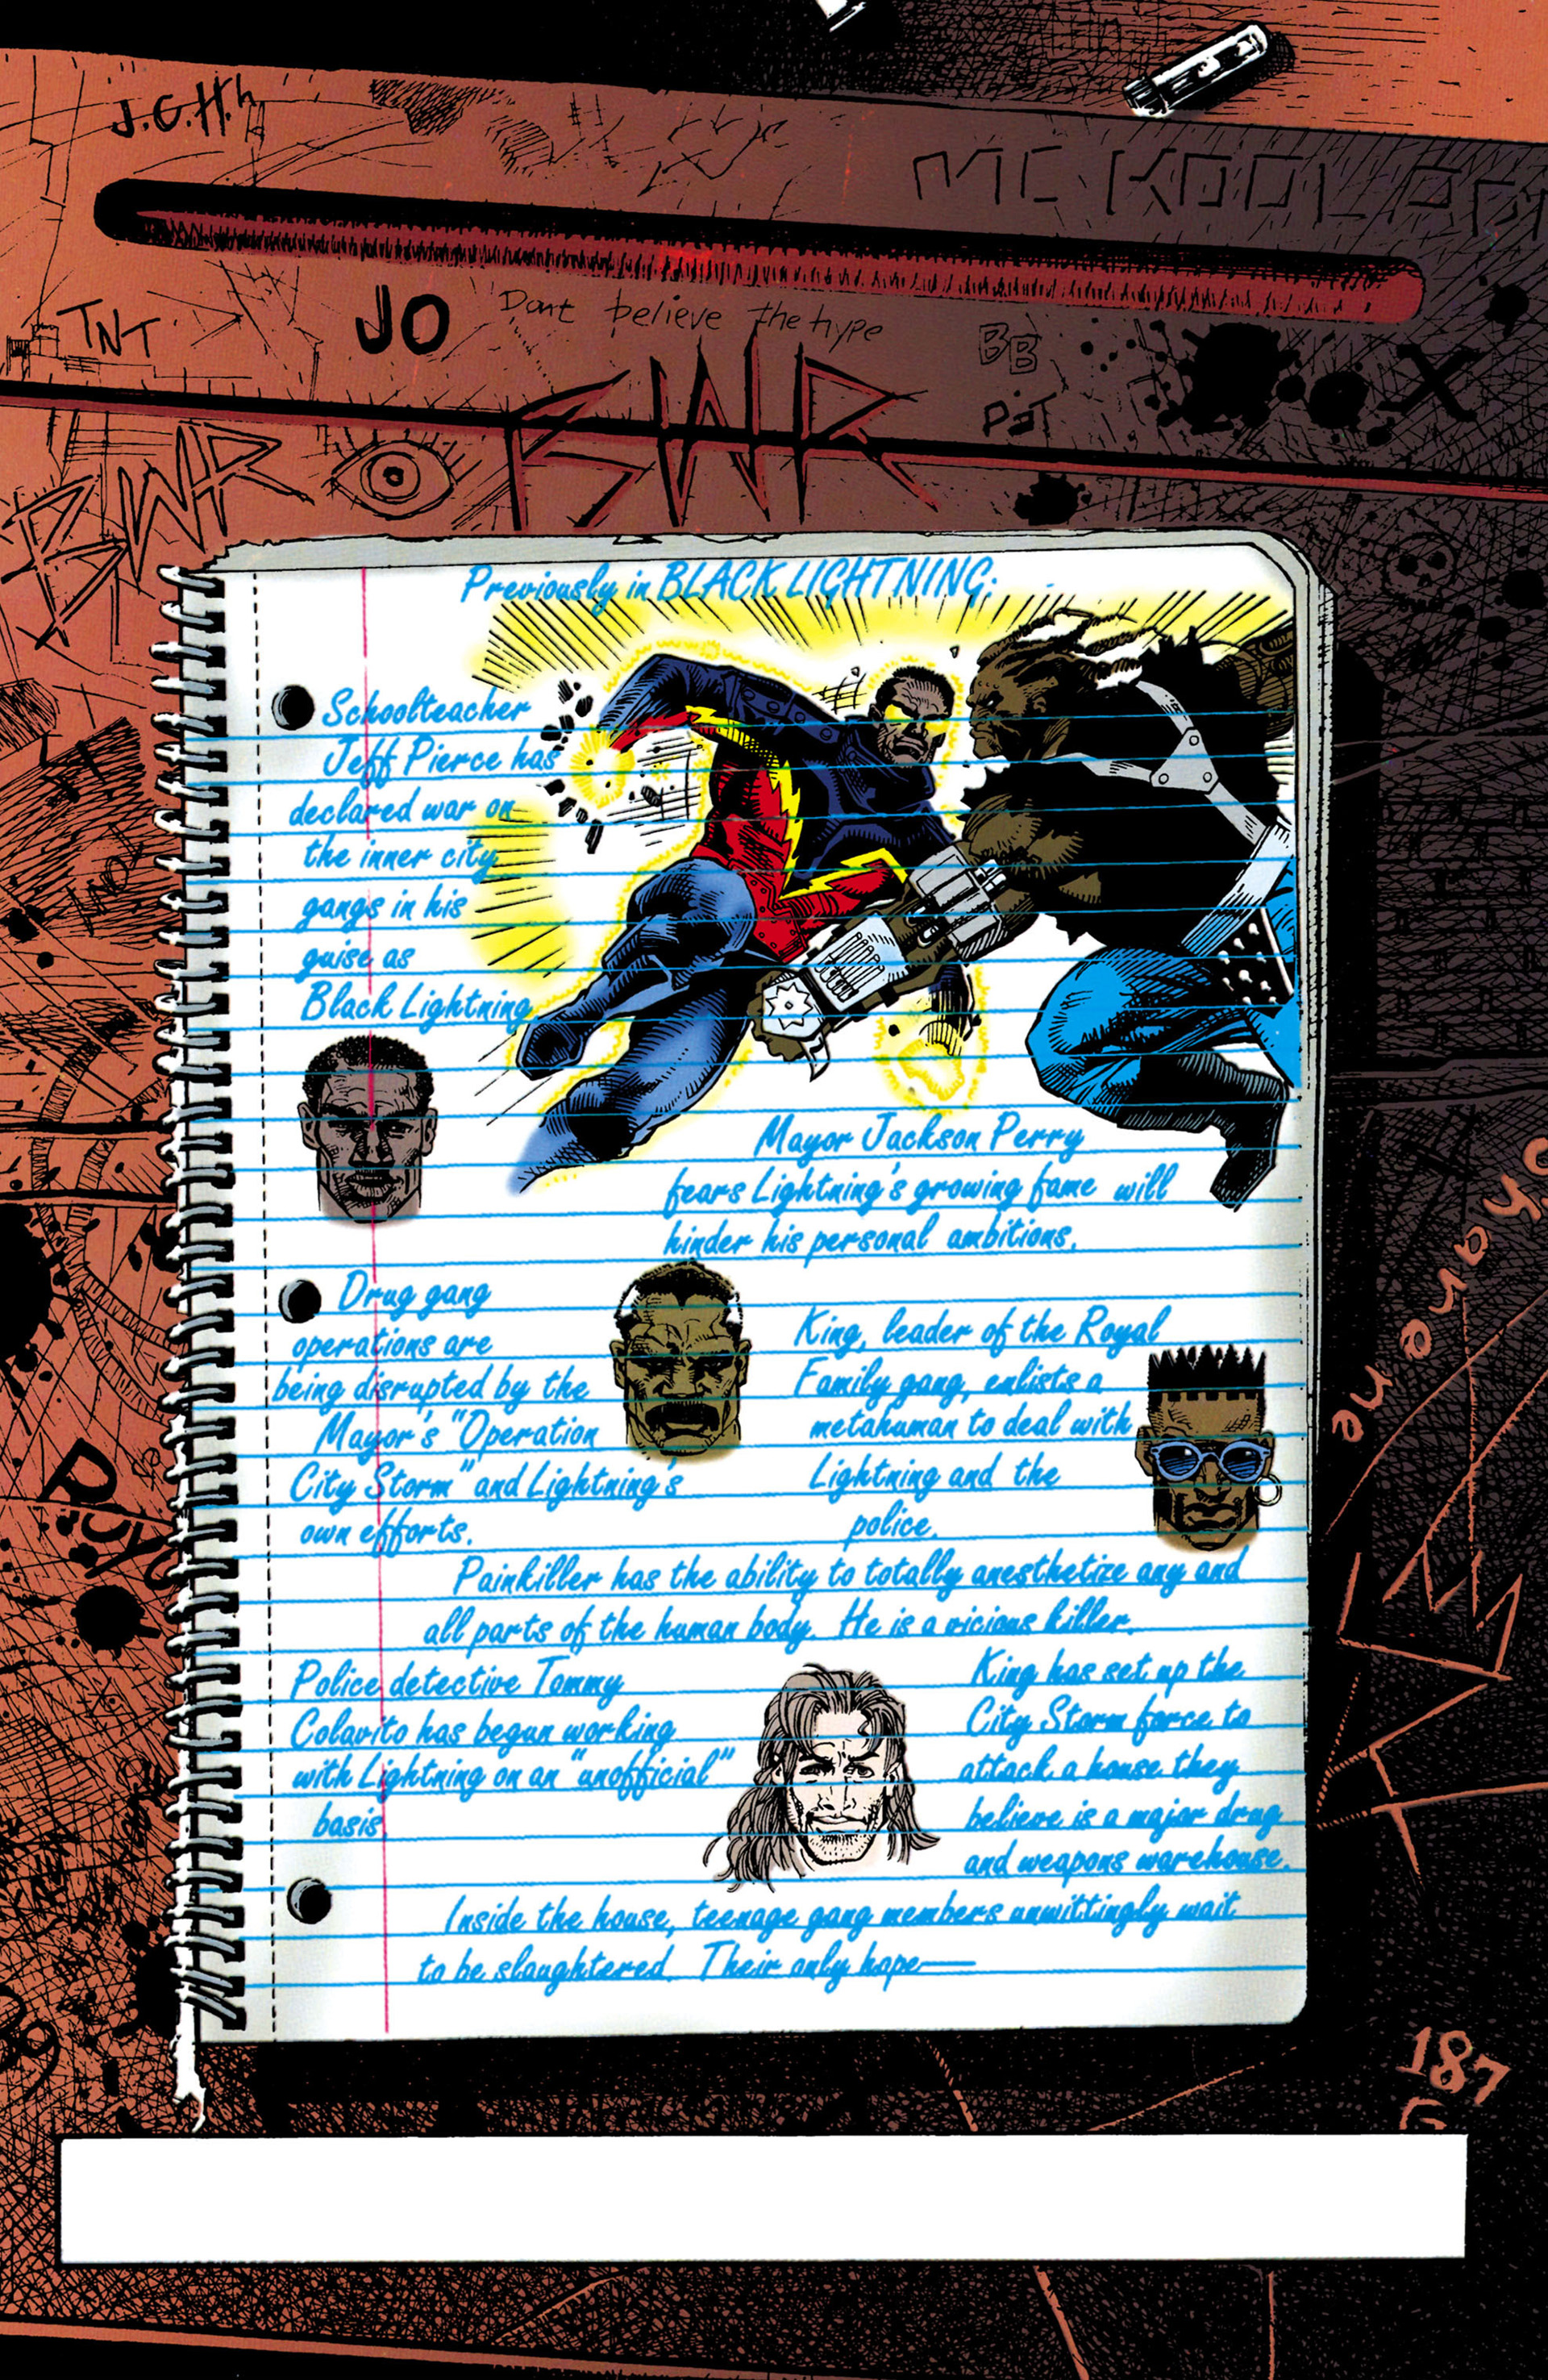 J.G.H.h
MC KOOL
TNT
JO
Dont believe the hype
BB
BWR
X
BWR
Previously in BLACK LIGHTNING:
Schoolteacher
Jeff Pierce has
declared war on
the inner city
gangs in his
guise as
Black Lightning.
Mayor Jackson Perry
fears Lightning's growing fame will
hinder his personal ambitions.
Drug gang
operations are
being disrupted by the
Mayor's "Operation
City Storm" and Lightning's
own efforts.
King, leader of the Royal
Family gang, enlists a
metahuman to deal with
Lightning and the
police.
Painkiller has the ability to totally anesthetize any and
all parts of the human body. He is a vicious killer.
Police detective Tommy
Colavito has begun working
with Lightning on an "unofficial"
basis.
King has set up the
City Storm force to
attack a house they
believe is a major drug
and weapons warehouse.
Inside the house, teenage gang members unwittingly wait
to be slaughtered. Their only hope—
187